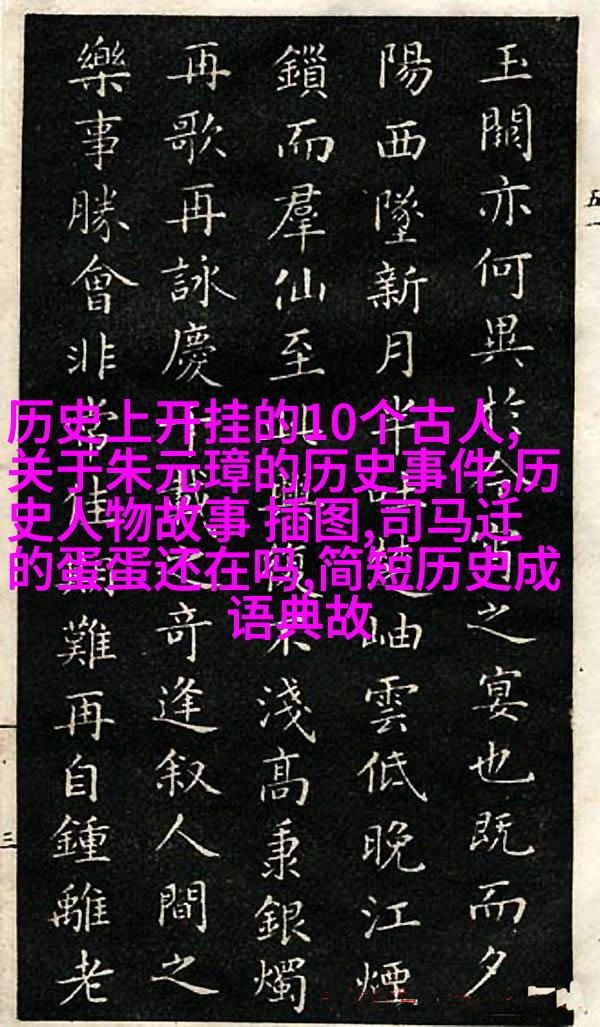 历史上开挂的10个古人,
关于朱元璋的历史事件,历
史人物故事 插图,司马迁
的蛋蛋还在吗,简短历史成
语典故
玉闕亦何異於今宵之宴也既而夕
陽西墜新月半吐楚岫雲低晚江煙
鎖而羣仙至此興復不淺高秉銀燭
再歌再詠慶千載之奇逢叙人間之
樂事勝會非常佳期難再自鍾離老